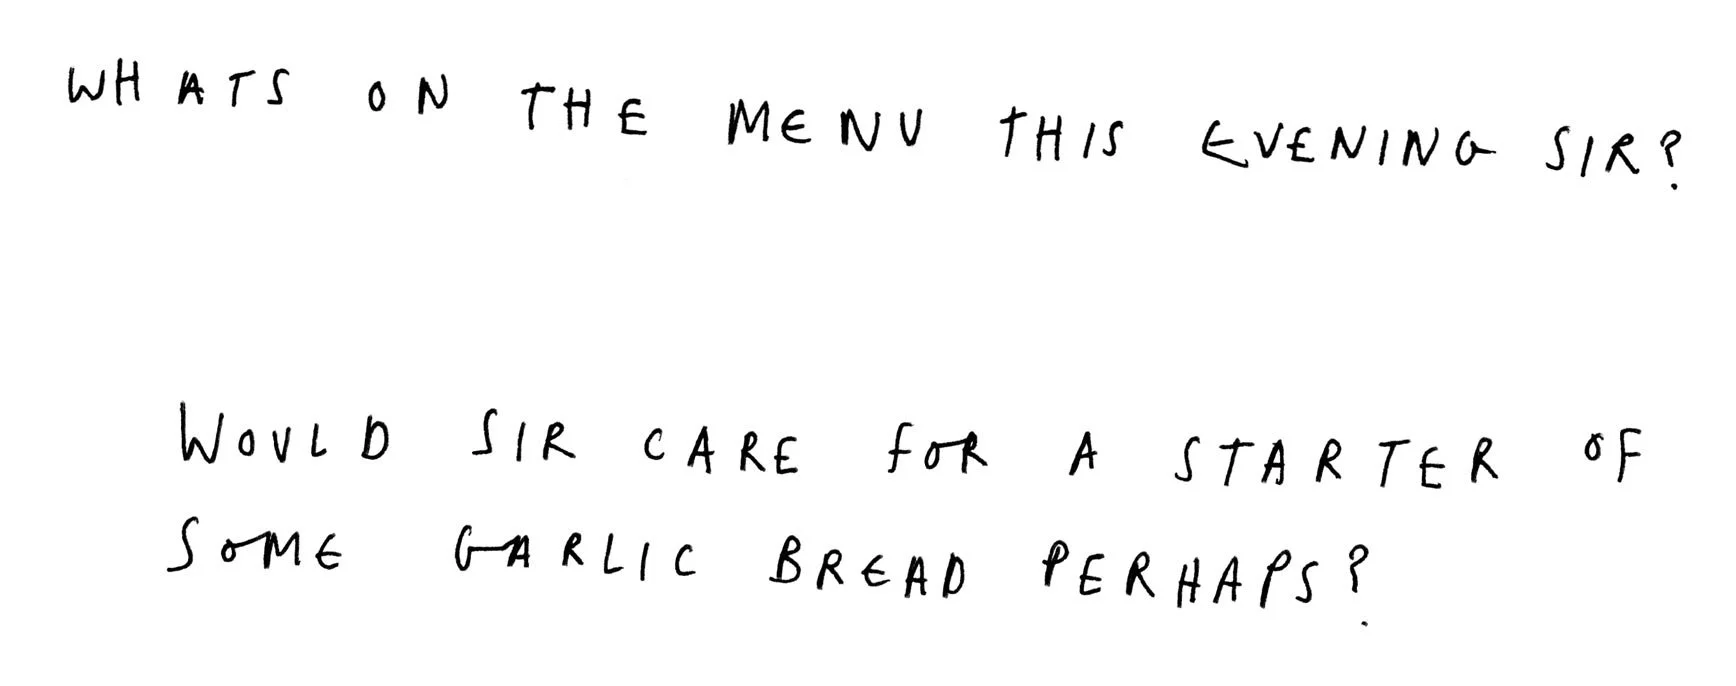 WHATS ON THE MENU THIS EVENING SIR?
WOULD SIR CARE FOR A STARTER OF
SOME GARLIC BREAD PERHAPS?